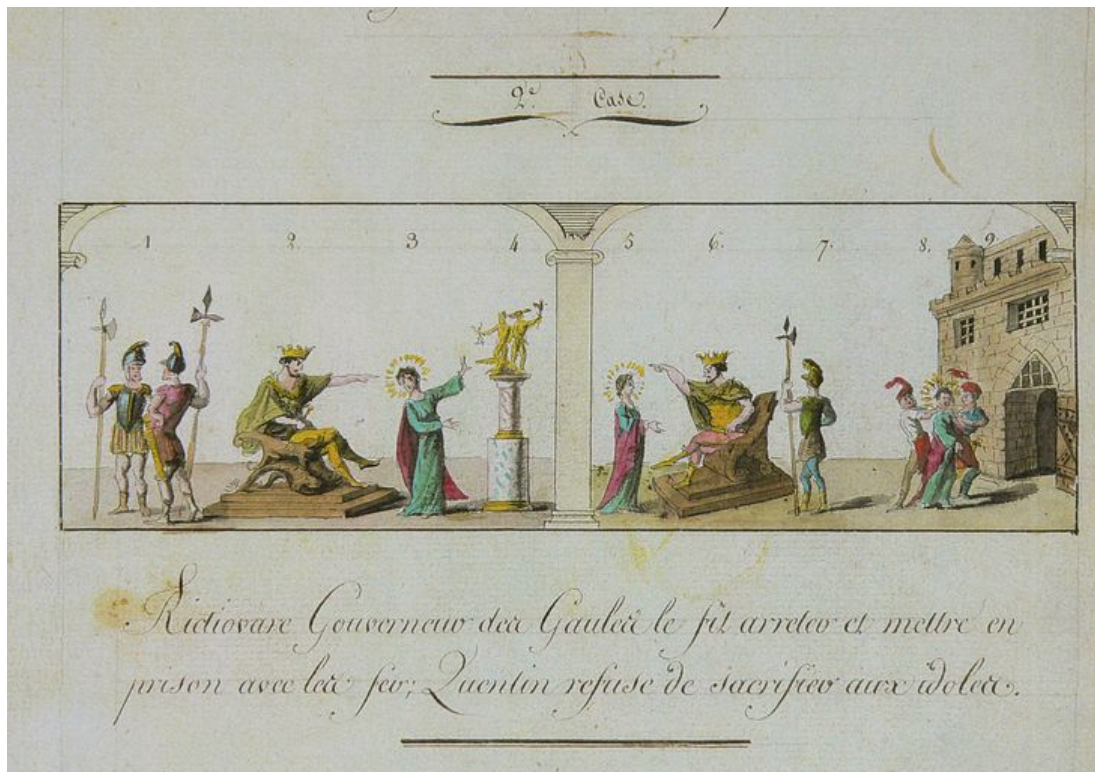 2.e Case.
1 2. 3 4 5 6. 7. 8. 9.
Rictiovare Gouverneur des Gaules le fit arreter et mettre en
prison avec les fers; Quentin refuse de sacrifier aux idoles.